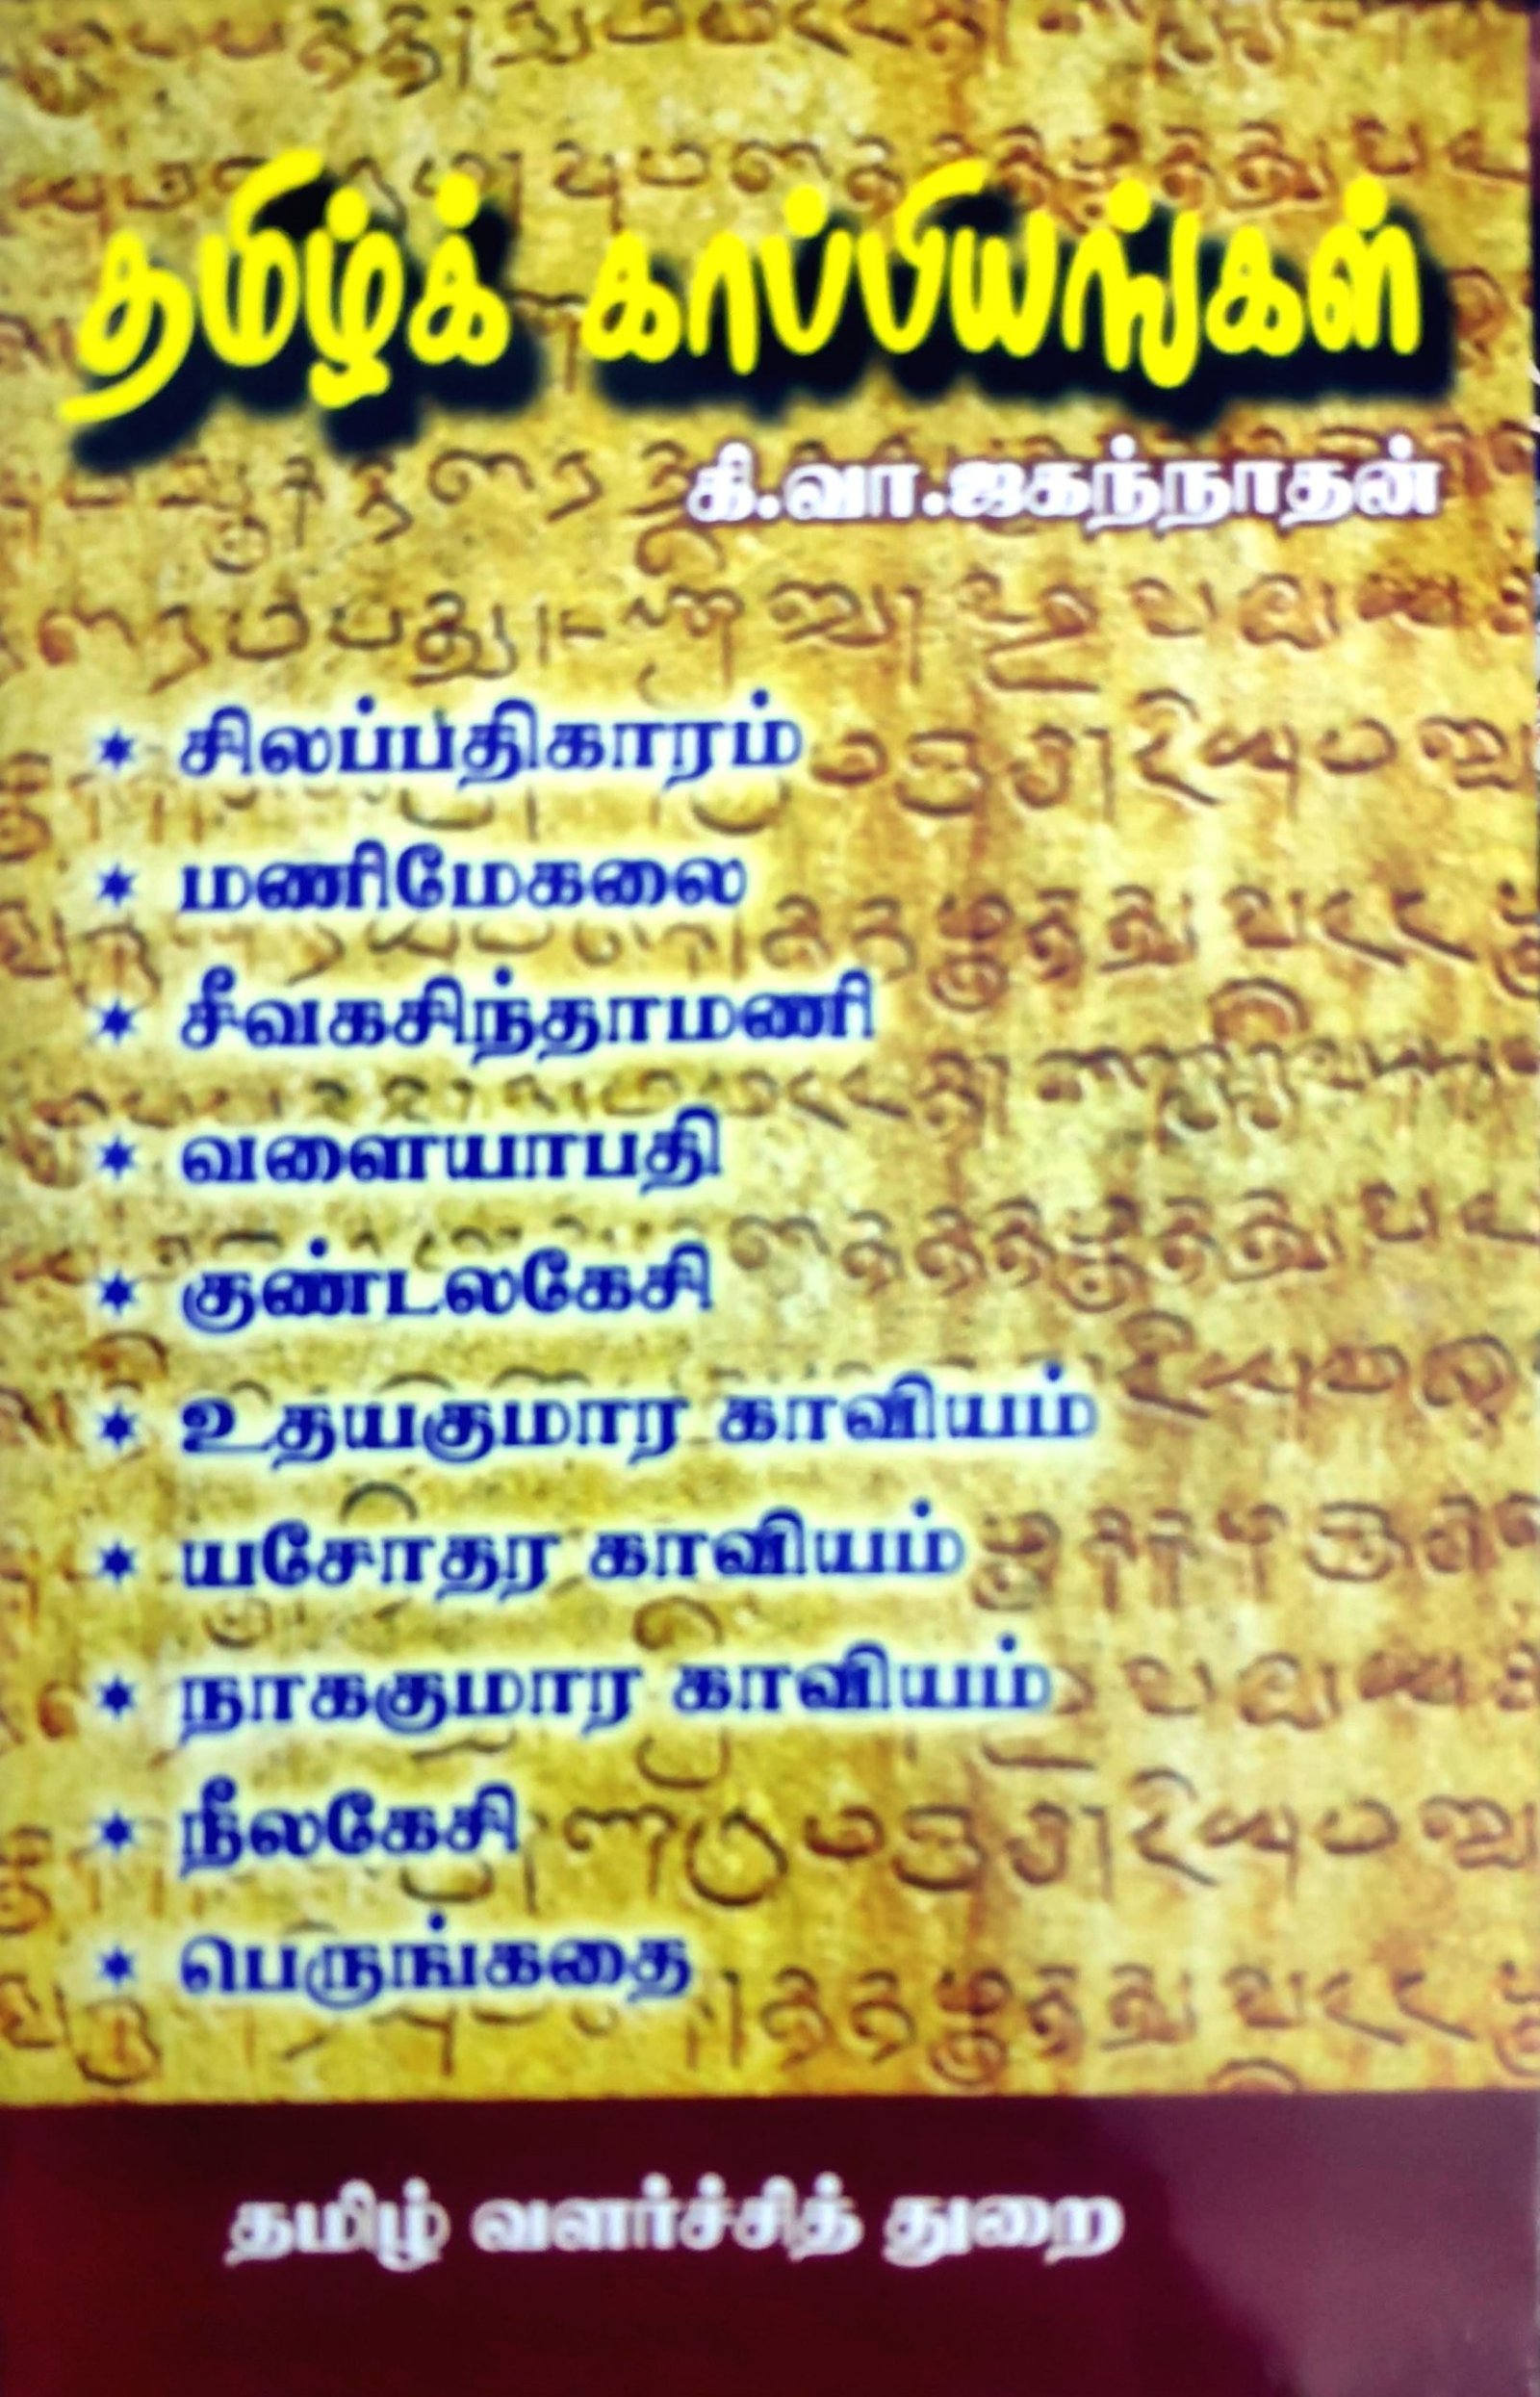 தமிழ்க் காப்பியங்கள்
கி.வா.ஜகந்நாதன்
* சிலப்பதிகாரம்
* மணிமேகலை
* சீவகசிந்தாமணி
* வளையாபதி
* குண்டலகேசி
* உதயகுமார காவியம்
* யசோதர காவியம்
* நாககுமார காவியம்
* நீலகேசி
* பெருங்கதை
தமிழ் வளர்ச்சித் துறை